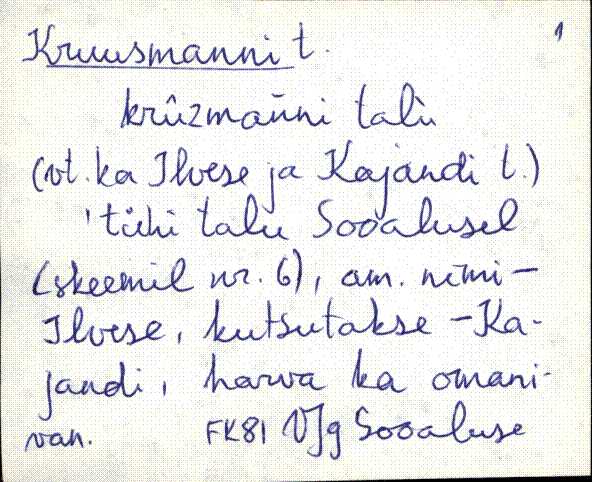 1
Kruusmanni t.
krûzmaǹni talù
(vt. ka Ilvese ja Kajandi t.)
'tühi talu Sooalusel
(skeemil nr. 6), am. nimi -
Ilvese, kutsutakse - Ka-
jandi, harva ka omani-
van. FK81 VJg Sooaluse